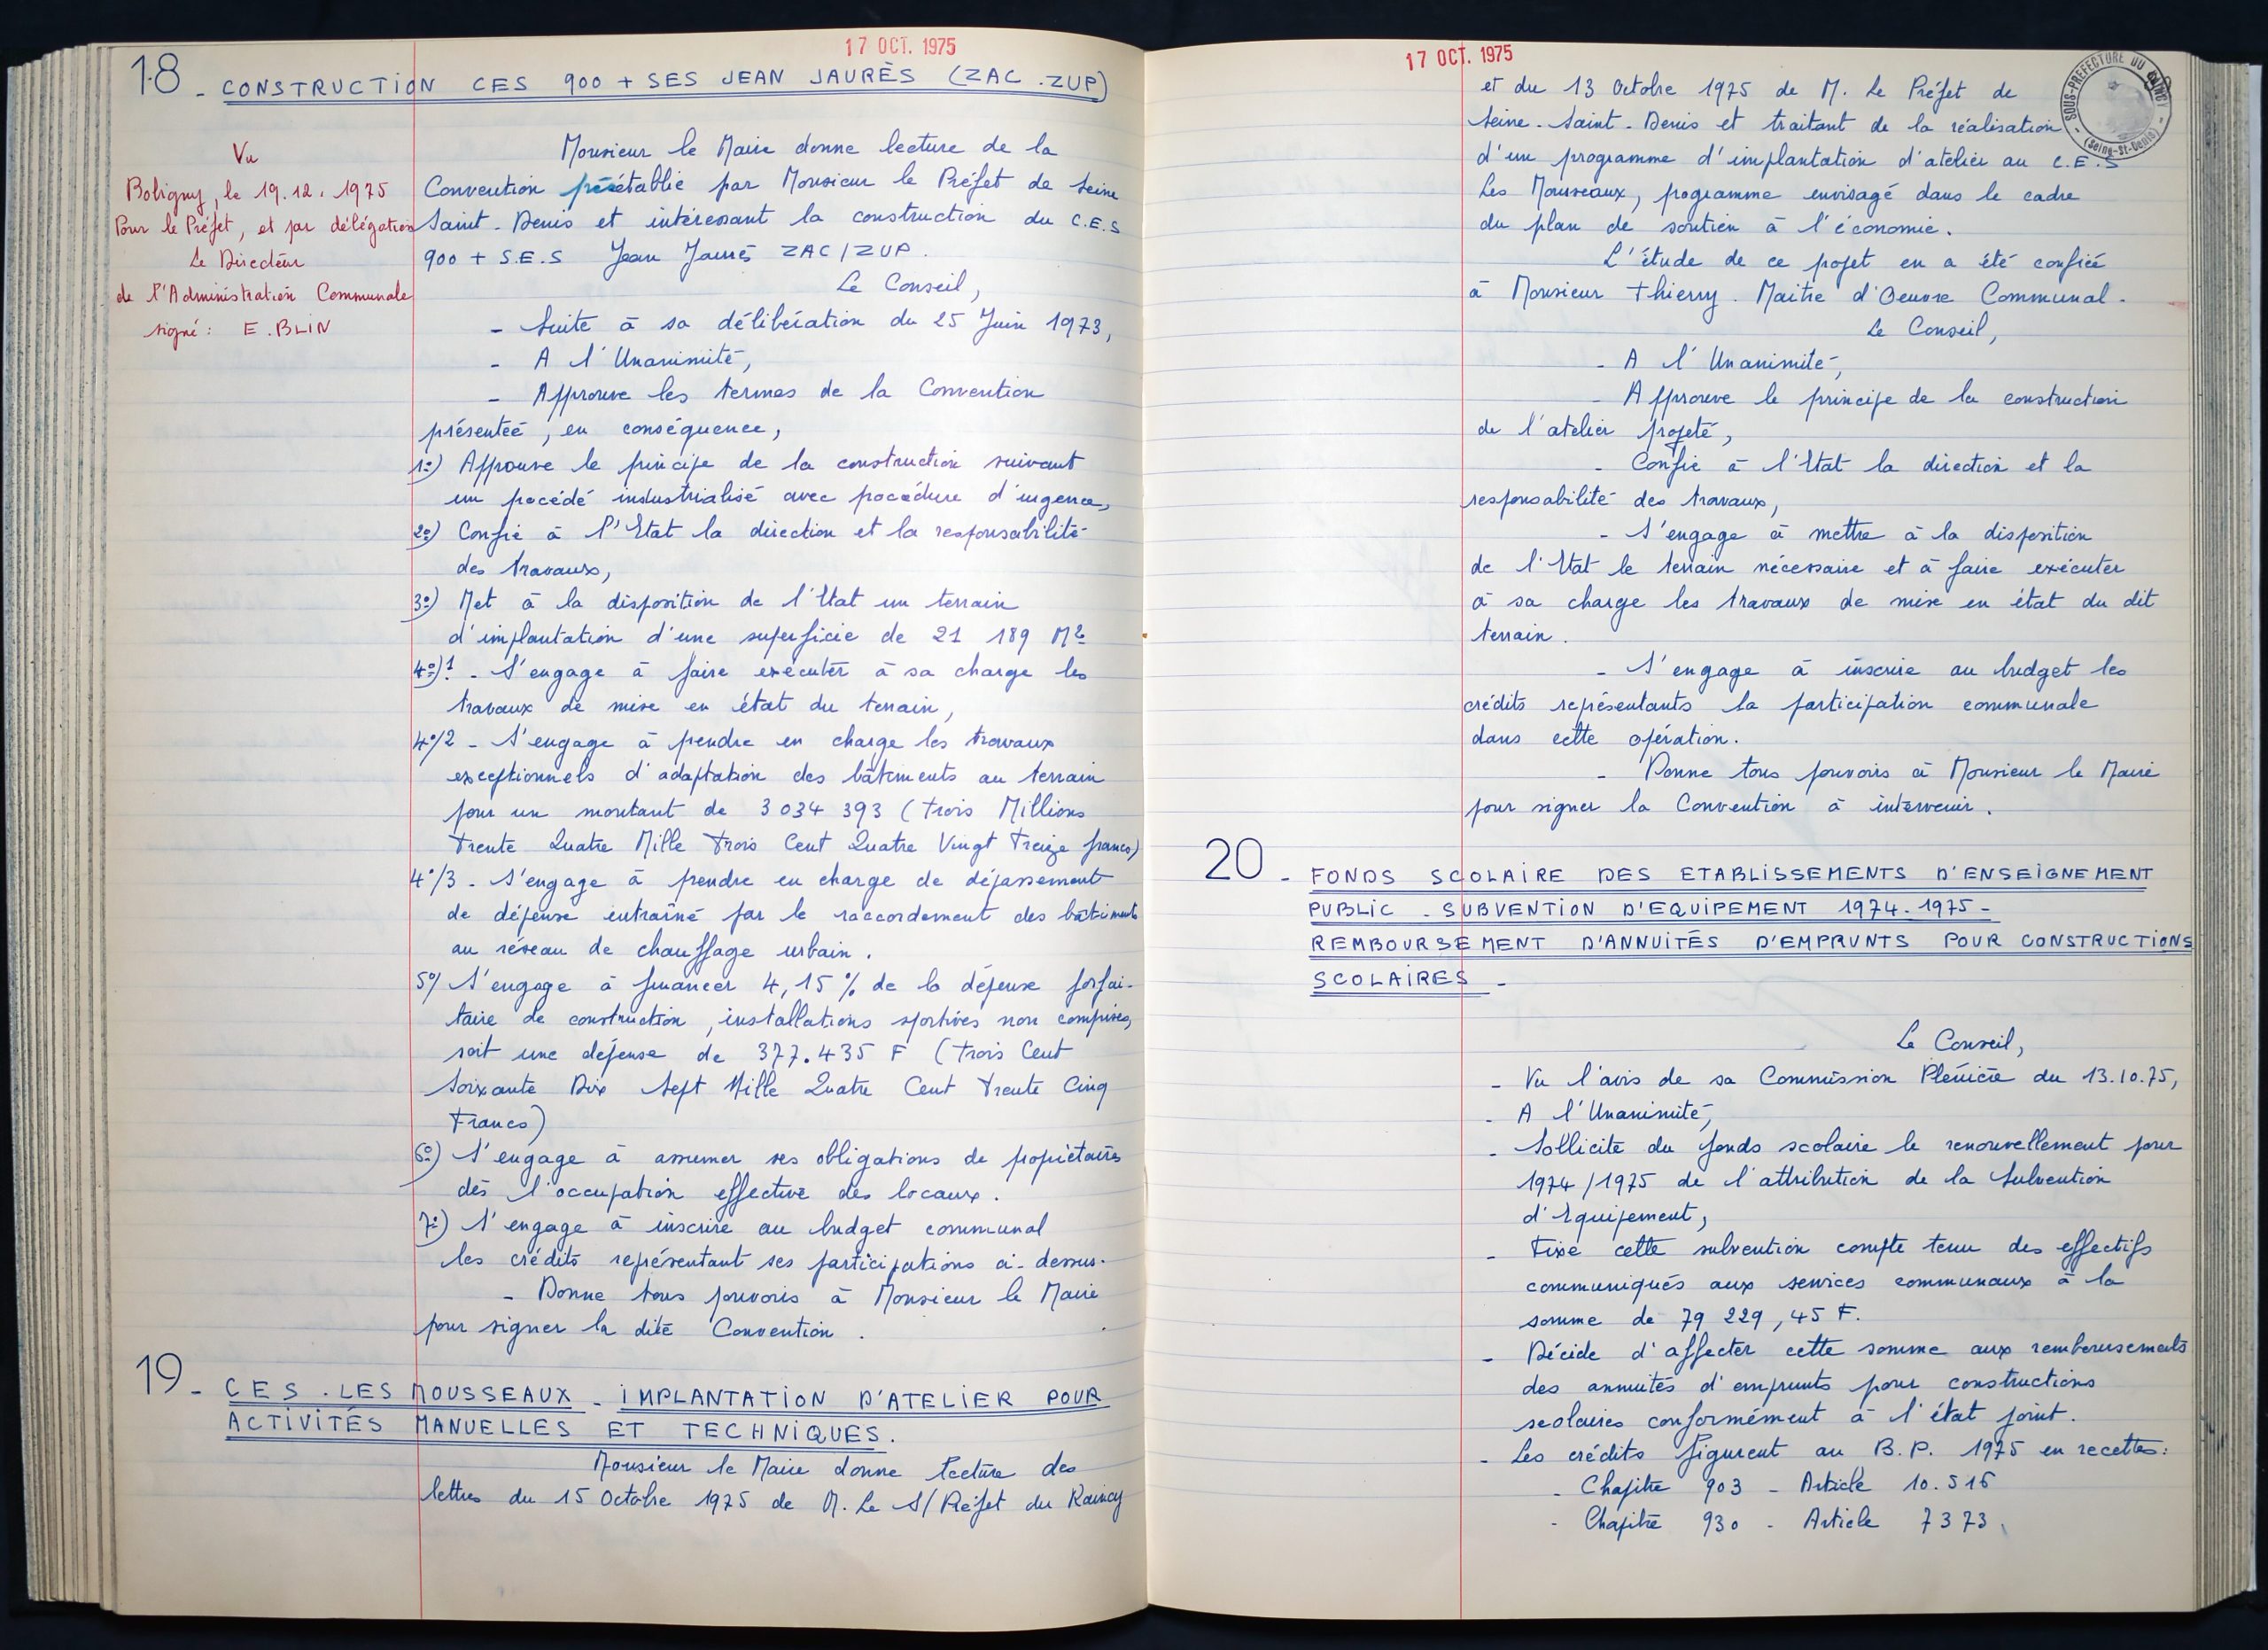 17 OCT. 1975
18 - CONSTRUCTION CES 900 + SES JEAN JAURÈS (ZAC.ZUP)
Vu
Bobigny, le 19.12.1975
Pour le Préfet, et par délégation
Le Directeur
de l'Administration Communale
signé : E. BLIN
Monsieur le Maire donne lecture de la
Convention préétablie par Monsieur le Préfet de Seine
Saint-Denis et intéressant la construction du C.E.S
900 + S.E.S Jean Jaurès ZAC/ZUP.
Le Conseil,
- Suite à sa délibération du 25 Juin 1973,
- A l'Unanimité,
- Approuve les termes de la Convention
présentée, en conséquence,
1°) Approuve le principe de la construction suivant
un procédé industrialisé avec procédure d'urgence,
2°) Confie à l'Etat la direction et la responsabilité
des travaux,
3°) Met à la disposition de l'Etat un terrain
d'implantation d'une superficie de 21 189 M2
4°)1 - S'engage à faire exécuter à sa charge les
travaux de mise en état du terrain,
4°/2 - S'engage à prendre en charge les travaux
exceptionnels d'adaptation des bâtiments au terrain
pour un montant de 3 034 393 (Trois Millions
Trente Quatre Mille Trois Cent Quatre Vingt Treize francs)
4°/3 - S'engage à prendre en charge de dépassement
de dépense entraîné par le raccordement des bâtiments
au réseau de chauffage urbain.
5°/ S'engage à financer 4,15 % de la dépense forfai-
taire de construction, installations sportives non comprises,
soit une dépense de 377.435 F (Trois Cent
Soixante Dix Sept Mille Quatre Cent Trente Cinq
Francs)
6°) S'engage à assumer ses obligations de propriétaires
dès l'occupation effective des locaux.
7°) S'engage à inscrire au budget communal
les crédits représentant ses participations ci-dessus.
- Donne tous pouvoirs à Monsieur le Maire
pour signer la dite Convention.
19 - CES. LES MOUSSEAUX - IMPLANTATION D'ATELIER POUR
ACTIVITÉS MANUELLES ET TECHNIQUES.
Monsieur le Maire donne lecture des
lettres du 15 Octobre 1975 de M. Le S/Préfet du Raincy
17 OCT. 1975
SOUS-PREFECTURE DU RAINCY
(Seine-St-Denis)
et du 13 Octobre 1975 de M. Le Préfet de
Seine-Saint-Denis et traitant de la réalisation
d'un programme d'implantation d'atelier au C.E.S
Les Mousseaux, programme envisagé dans le cadre
du plan de soutien à l'économie.
L'étude de ce projet en a été confiée
à Monsieur Thierry. Maitre d'Oeuvre Communal.
Le Conseil,
- A l'Unanimité,
- Approuve le principe de la construction
de l'atelier projeté,
- Confie à l'Etat la direction et la
responsabilité des travaux,
- S'engage à mettre à la disposition
de l'Etat le terrain nécessaire et à faire exécuter
à sa charge les travaux de mise en état du dit
terrain.
- S'engage à inscrire au budget les
crédits représentants la participation communale
dans cette opération.
- Donne tous pouvoirs à Monsieur le Maire
pour signer la Convention à intervenir.
20 - FONDS SCOLAIRE DES ETABLISSEMENTS D'ENSEIGNEMENT
PUBLIC - SUBVENTION D'EQUIPEMENT 1974-1975 -
REMBOURSEMENT D'ANNUITÉS D'EMPRUNTS POUR CONSTRUCTIONS
SCOLAIRES -
Le Conseil,
- Vu l'avis de sa Commission Plénière du 13.10.75,
- A l'Unanimité,
- Sollicite du fonds scolaire le renouvellement pour
1974/1975 de l'attribution de la Subvention
d'Equipement,
- Fixe cette subvention compte tenu des effectifs
communiqués aux services communaux à la
somme de 79 229,45 F.
- Décide d'affecter cette somme aux remboursements
des annuités d'emprunts pour constructions
scolaires conformément à l'état joint.
- Les crédits figurent au B.P. 1975 en recettes:
- Chapitre 903 - Article 10.516
- Chapitre 930 - Article 7373.